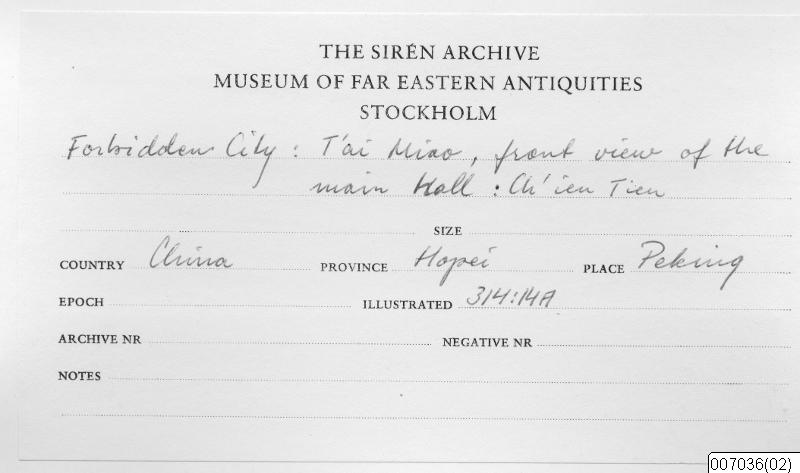 THE SIRÉN ARCHIVE
MUSEUM OF FAR EASTERN ANTIQUITIES
STOCKHOLM
Forbidden City: T'ai Miao, front view of the
main Hall: Ch'ien Tien
SIZE
COUNTRY China PROVINCE Hopei PLACE Peking
EPOCH ILLUSTRATED 314:14A
ARCHIVE NR NEGATIVE NR
NOTES
007036(02)